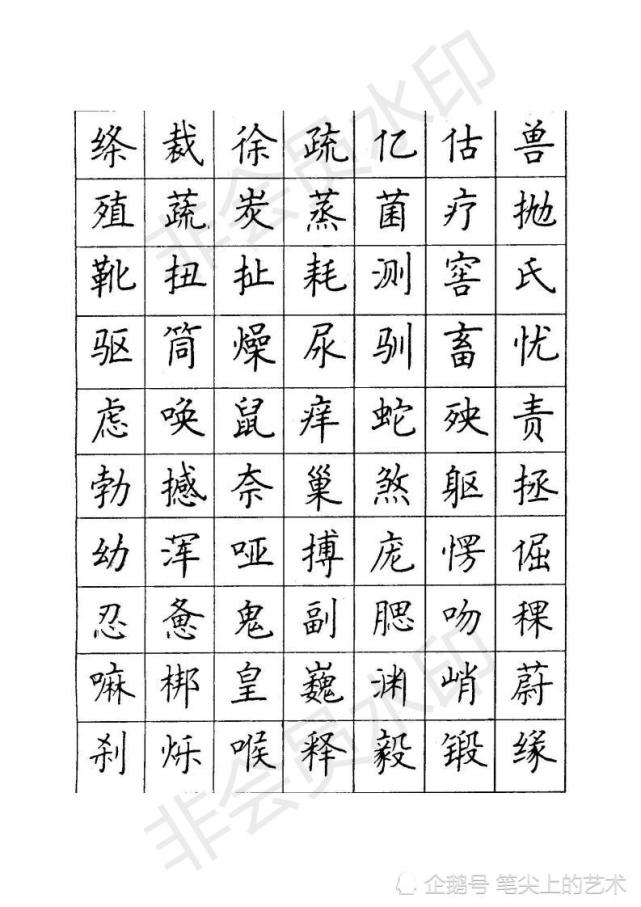 绦 裁 徐 疏 亿 估 兽
殖 蔬 炭 蒸 菌 疗 抛
靴 扭 扯 耗 测 窖 氏
驱 筒 燥 尿 驯 畜 忧
虑 唤 鼠 痒 蛇 殃 责
勃 撼 奈 巢 煞 躯 拯
幼 浑 哑 搏 庞 愣 倔
忍 惫 鬼 副 腮 吻 稞
嘛 梆 皇 巍 渊 峭 蔚
刹 烁 喉 释 毅 锻 缘
非会员水印
非会员水印
企鹅号 笔尖上的艺术